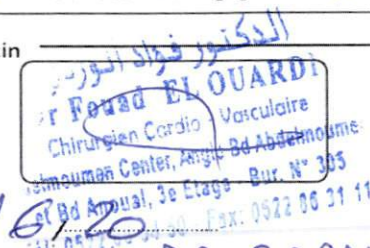 in
الدكتور فؤاد الوردي
r Fouad EL OUARDI
Chirurgien Cardio - Vasculaire
Center, Angle Bd Abdelmoumen
et Bd Anoual, 3e Etage - Bur. N° 305
Fax: 0522 86 31 11